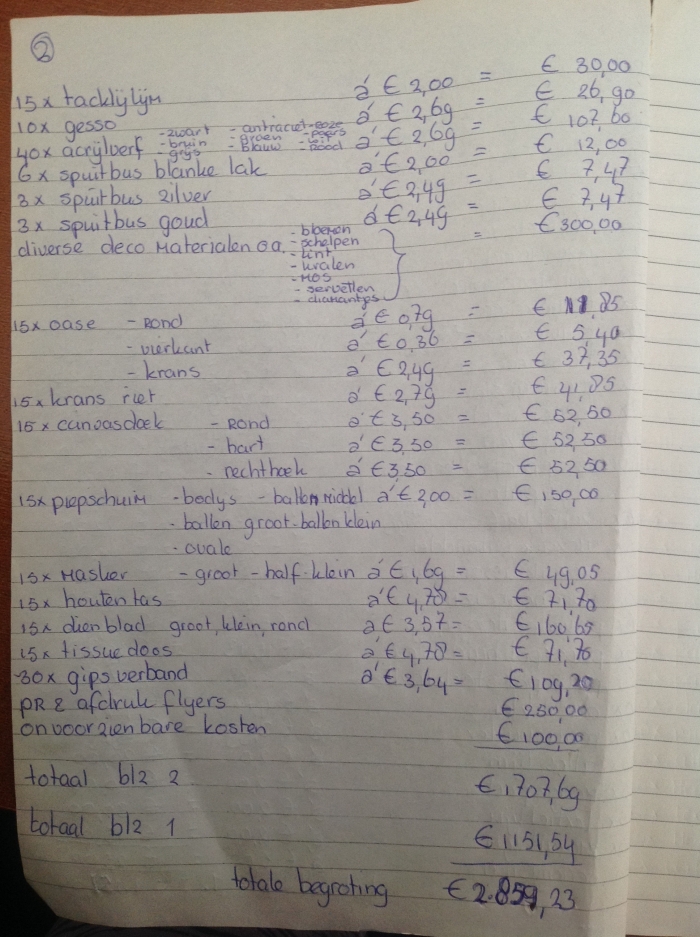 2
15x tacklijlijm à € 2,00 = € 30,00
10x gesso à € 2,69 = € 26,90
40x acrijlverf - zwart - antraciet - roze à € 2,69 = € 107,60
- bruin - groen - paars
- grijs - blauw - wit - rood
6x spuitbus blanke lak à € 2,00 = € 12,00
3x spuitbus zilver à € 2,49 = € 7,47
3x spuitbus goud à € 2,49 = € 7,47
diverse deco materialen oa. - bloemen = € 300,00
- schelpen
- lint
- kralen
- mos
- servetten
- diamantjes
15x oase - rond à € 0,79 = € 11,85
- vierkant à € 0,36 = € 5,40
- krans à € 2,49 = € 37,35
15x krans riet à € 2,79 = € 41,85
15x canvasdoek - rond à € 3,50 = € 52,50
- hart à € 3,50 = € 52,50
- rechthoek à € 3,50 = € 52,50
15x piepschuim - bodys - ballen middel à € 2,00 = € 150,00
- ballen groot - ballen klein
- ovale
15x masker - groot - half - klein à € 1,69 = € 49,05
15x houten tas à € 4,78 = € 71,70
15x dienblad groot, klein, rond à € 3,57 = € 160,65
15x tissue doos à € 4,78 = € 71,70
30x gipsverband à € 3,64 = € 109,20
PR & afdruk flyers € 250,00
onvoorzienbare kosten € 100,00
totaal blz 2 € 1707,69
totaal blz 1 € 1151,54
totale begroting € 2.859,23